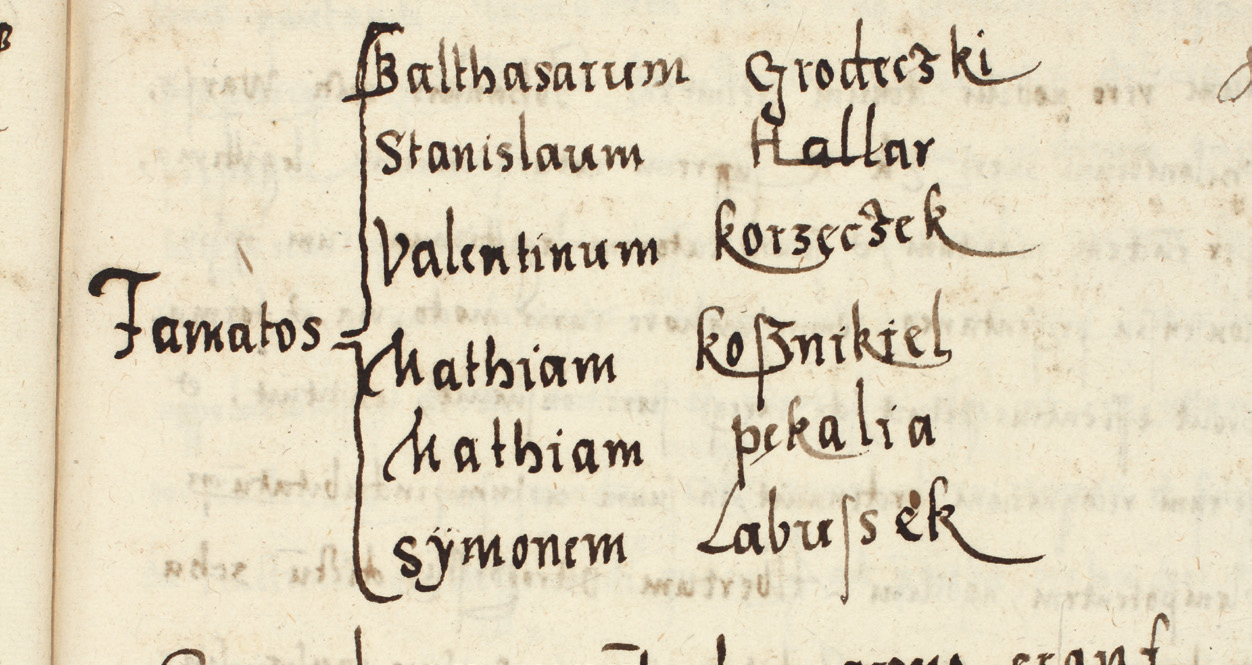 Balthasarum Grodeczki
Stanislaum Hallar
Valentinum korzęczek
Famatos
Mathiam koſznikiel
Mathiam pękalia
Sÿmonem Labuſsek